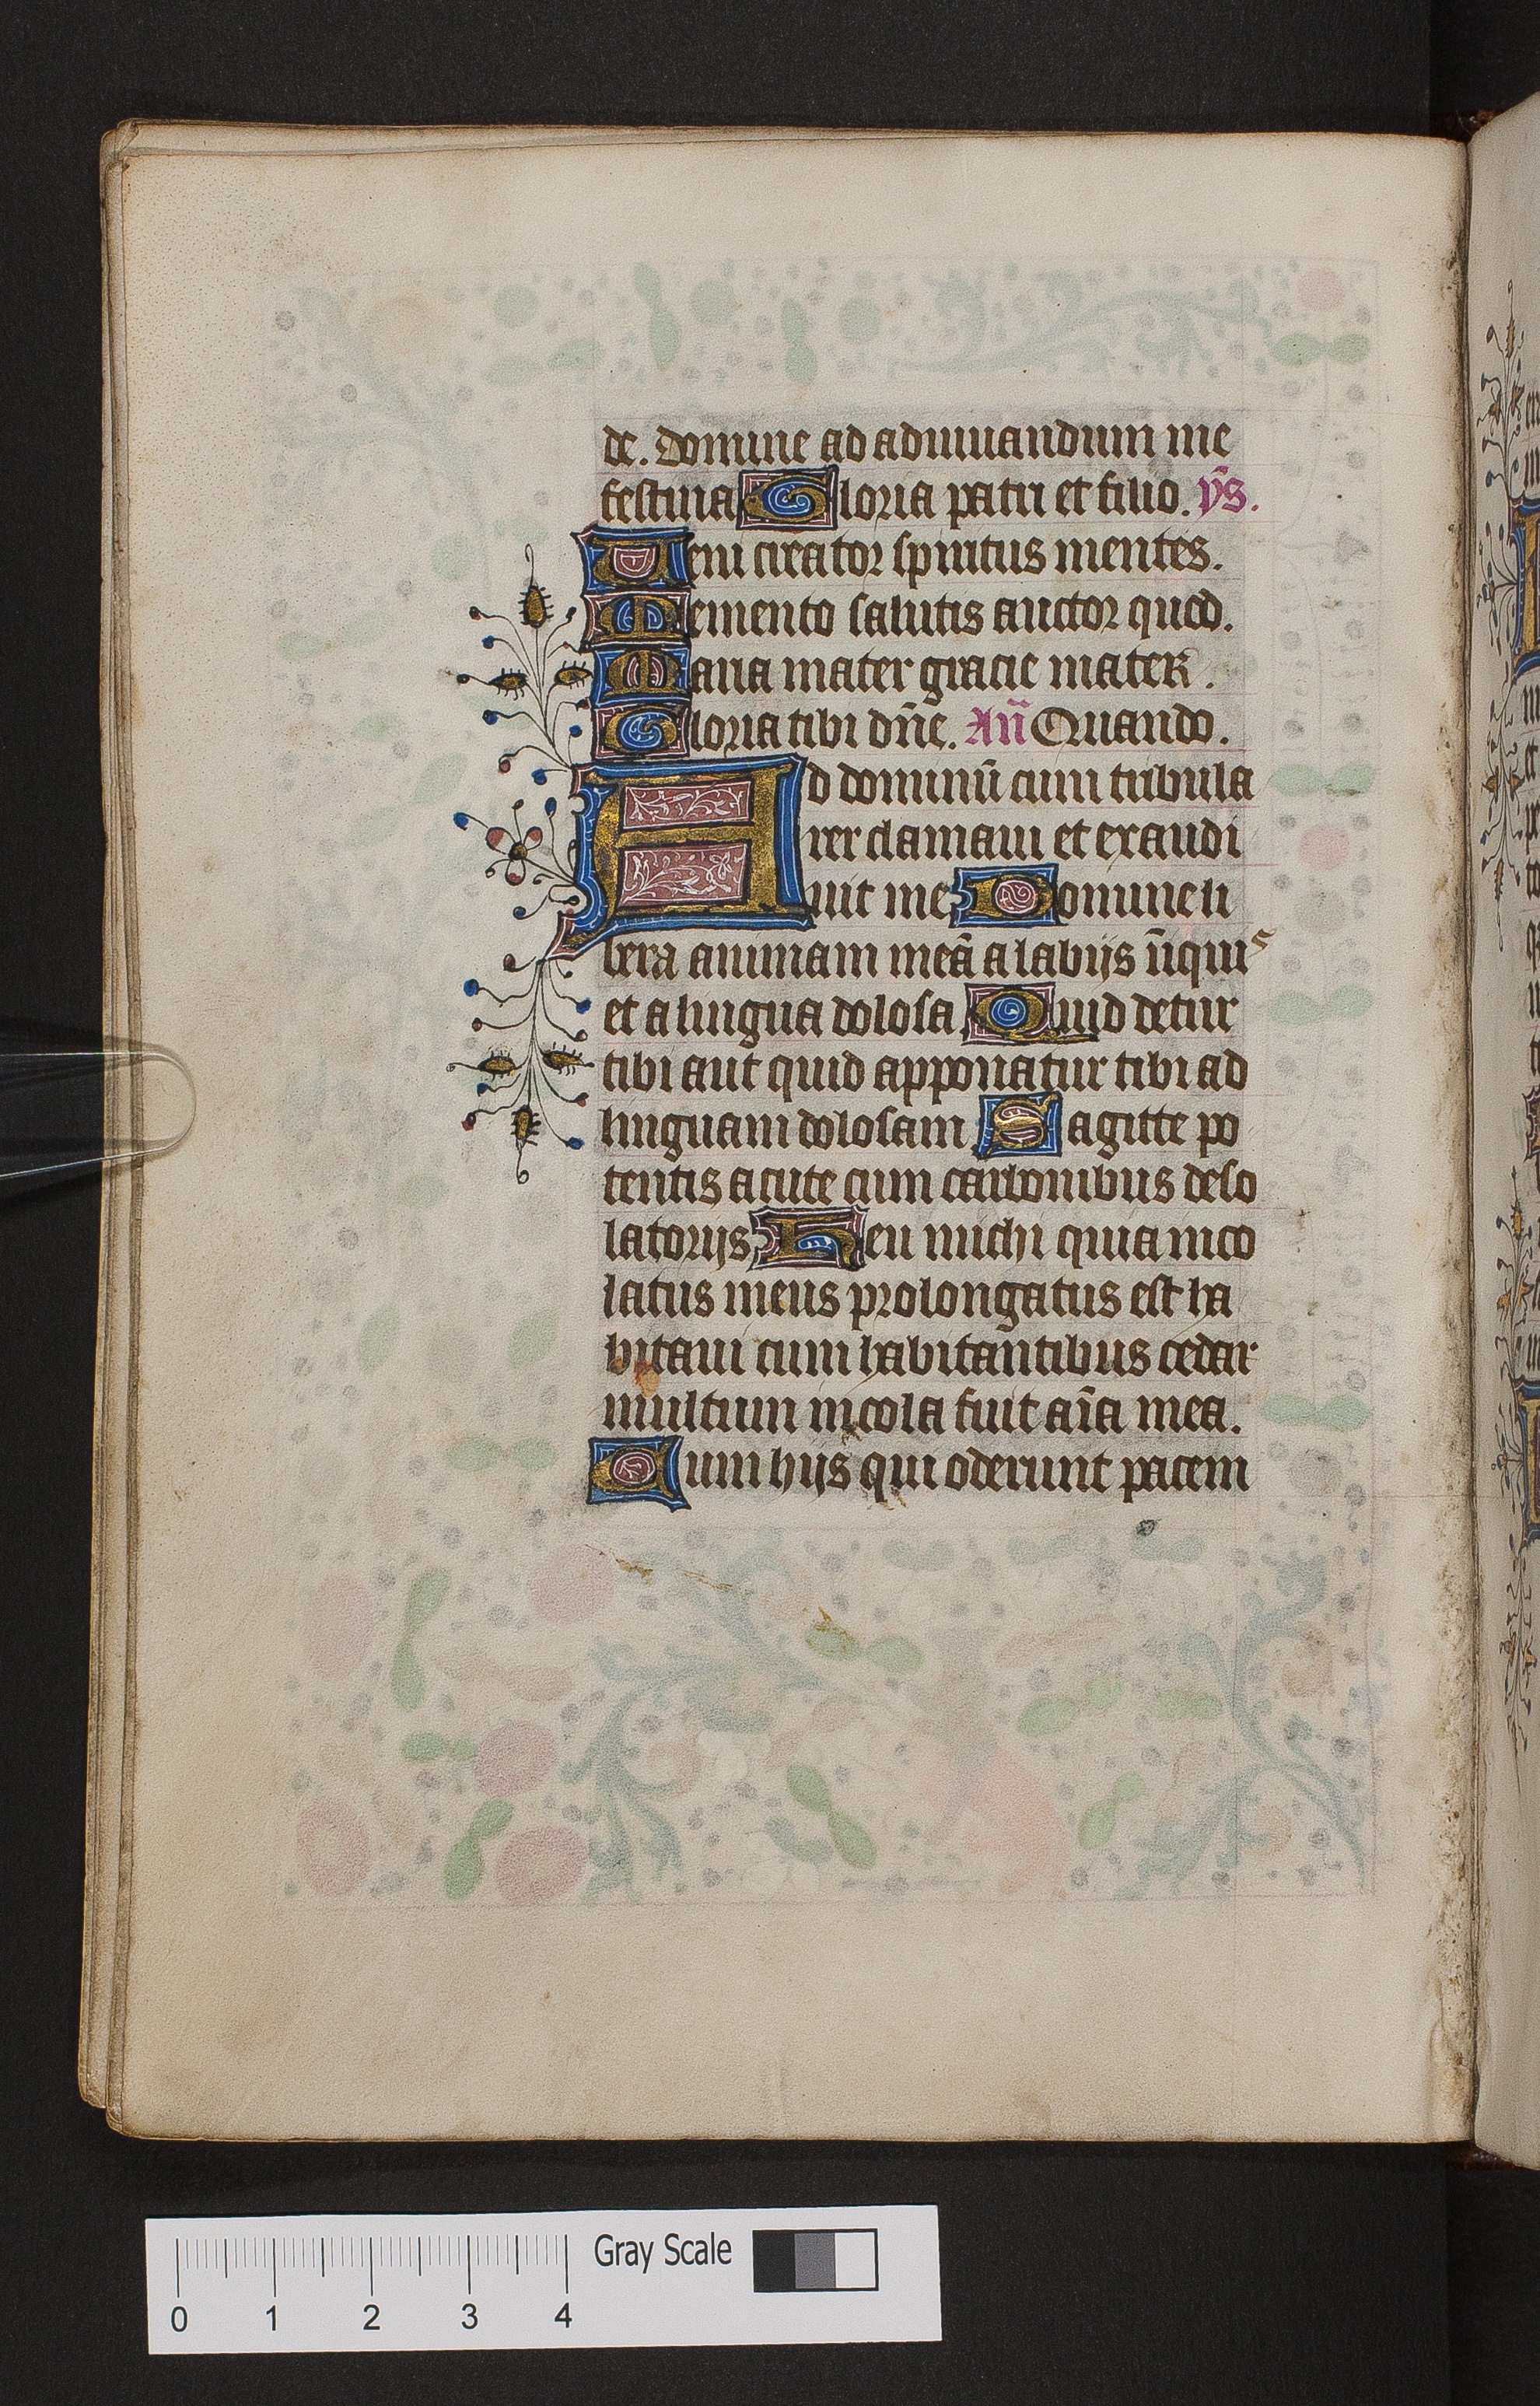 de. Domine ad adiuuandum me
festina Gloria patri et filio. ȳs.
Ueni creator spiritus mentes.
Memento salutis auctor quod.
Maria mater gracie mater.
Gloria tibi dn̄e. An̄ Quando.
Ad dominū cum tribula
rer clamaui et exaudi
uit me Domine li
bera animam meā a labijs iniquis
et a lingua dolosa Quid detur
tibi aut quid apponatur tibi ad
linguam dolosam Sagitte po
tentis acute cum carbonibus deso
latorijs Heu michi quia inco
latus meus prolongatus est ha
bitaui cum habitantibus cedar
multum incola fuit aīa mea.
Cum hijs qui oderunt pacem
Gray Scale
0 1 2 3 4